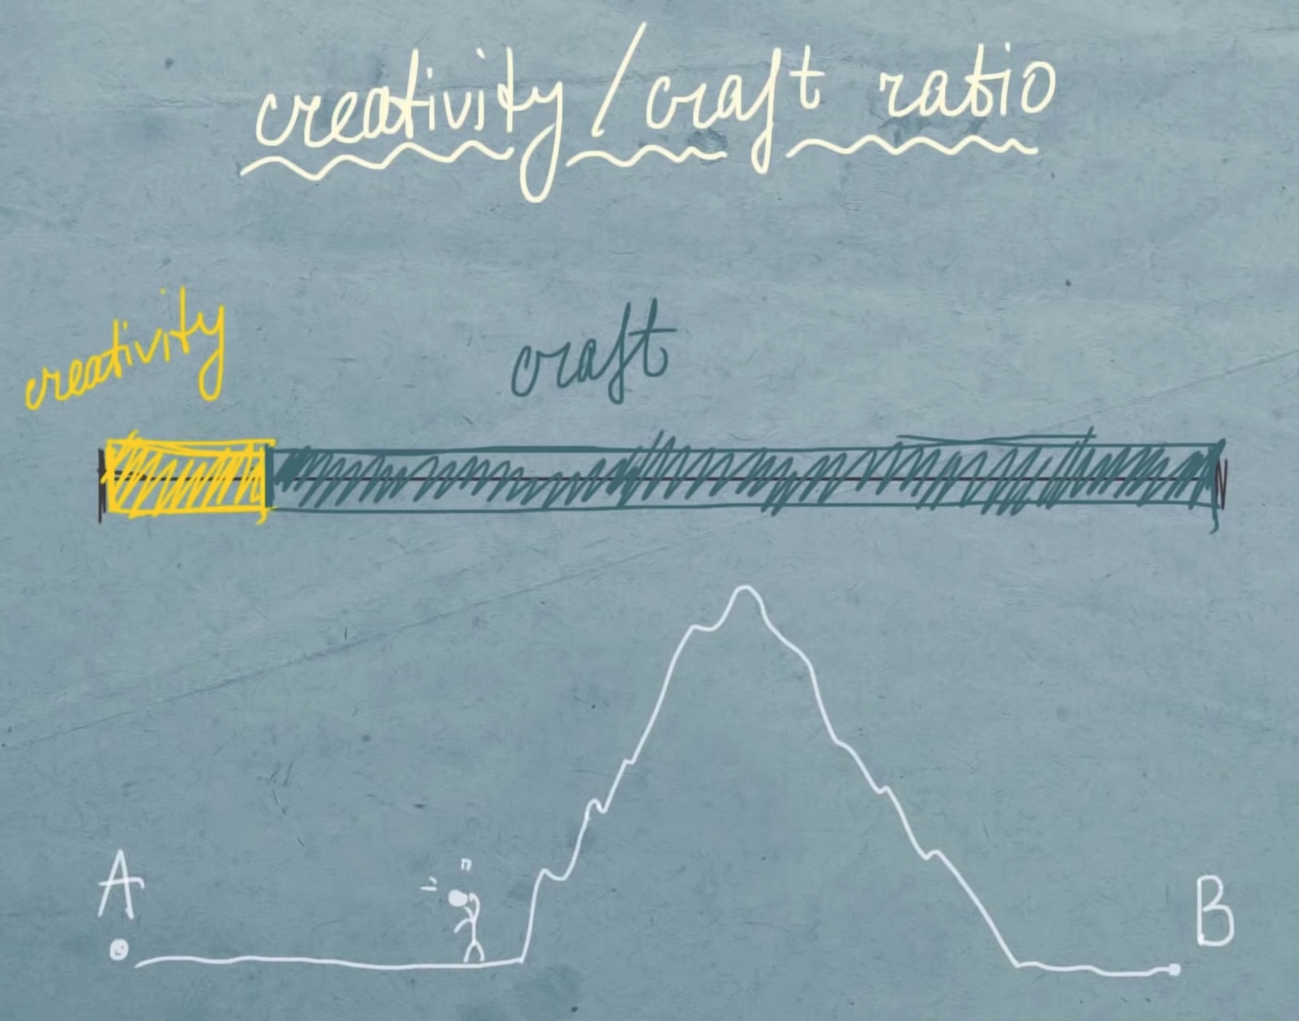 creativity/craft ratio
creativity
craft
A
B